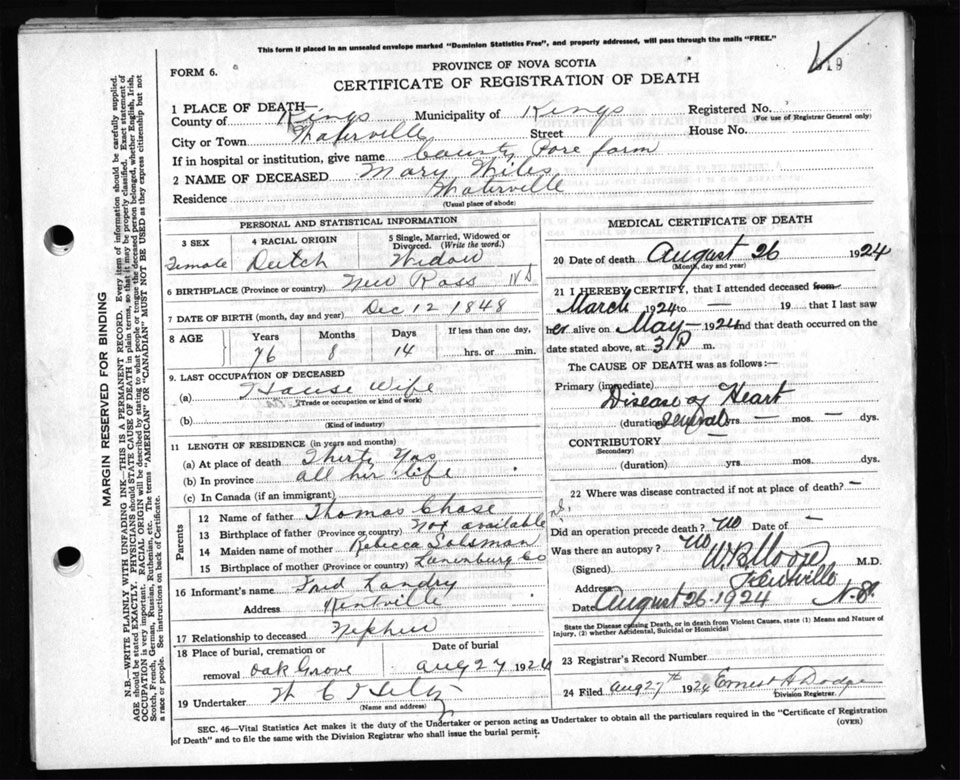 This form if placed in an unsealed envelope marked "Dominion Statistics Free", and properly addressed, will pass through the mails "FREE."
FORM 6.
PROVINCE OF NOVA SCOTIA
CERTIFICATE OF REGISTRATION OF DEATH
1 PLACE OF DEATH—
County of Kings Municipality of Kings Registered No.
(For use of Registrar General only)
City or Town Waterville Street House No.
If in hospital or institution, give name County Pore farm
2 NAME OF DECEASED Mary Wile
Residence Waterville
(Usual place of abode)
PERSONAL AND STATISTICAL INFORMATION
3 SEX Female
4 RACIAL ORIGIN Dutch
5 Single, Married, Widowed or Divorced. (Write the word.) Widow
6 BIRTHPLACE (Province or country) New Ross N S
7 DATE OF BIRTH (month, day and year) Dec 12 1848
8 AGE Years Months Days If less than one day,
76 8 14 hrs. or min.
9. LAST OCCUPATION OF DECEASED
(a) House Wife
(Trade or occupation or kind of work)
(b)
(Kind of industry)
11 LENGTH OF RESIDENCE (in years and months)
(a) At place of death Thirty Yrs
(b) In province all her life
(c) In Canada (if an immigrant)
Parents
12 Name of father Thomas Chase
13 Birthplace of father (Province or country) Not available
14 Maiden name of mother Rebecca
15 Birthplace of mother (Province or country) Lunenburg Co
16 Informant's name Ford Landry
Address Kentville
17 Relationship to deceased Nephew
18 Place of burial, cremation or removal Oak Grove Date of burial Aug 27 1924
19 Undertaker W C
(Name and address)
MEDICAL CERTIFICATE OF DEATH
20 Date of death August 26 1924
(Month, day and year)
21 I HEREBY CERTIFY, that I attended deceased from
March 1924 to — 19 that I last saw
her alive on May — 1924 and that death occurred on the
date stated above, at 3 P m.
The CAUSE OF DEATH was as follows:—
Primary (immediate)
Disease of Heart
(duration) several yrs — mos — dys.
CONTRIBUTORY —
(Secondary)
(duration) yrs mos dys.
22 Where was disease contracted if not at place of death? —
Did an operation precede death? no Date of —
Was there an autopsy? no
(Signed) W. B. Moore M.D.
Address Kentville
Date August 26-1924 N.S.
State the Disease causing Death, or in death from Violent Causes, state (1) Means and Nature of Injury, (2) whether Accidental, Suicidal or Homicidal
23 Registrar's Record Number
24 Filed Aug 27th 1924 Ernest H Dodge
Division Registrar.
SEC. 46—Vital Statistics Act makes it the duty of the Undertaker or person acting as Undertaker to obtain all the particulars required in the "Certificate of Registration
of Death" and to file the same with the Division Registrar who shall issue the burial permit.
(OVER)
MARGIN RESERVED FOR BINDING
N.B.—WRITE PLAINLY WITH UNFADING INK—THIS IS A PERMANENT RECORD. Every item of information should be carefully supplied.
AGE should be stated EXACTLY. PHYSICIANS should STATE CAUSE OF DEATH in plain terms, so that it may be properly classified. Exact statement of
OCCUPATION is very important. RACIAL ORIGIN will be described by stating to what people or tongue the deceased person belonged, whether English, Irish,
Scotch, French, German, Russian, Ruthenian, etc. The terms "AMERICAN" or "CANADIAN" MUST NOT BE USED as they express citizenship but not
a race or people. See instructions on back of Certificate.